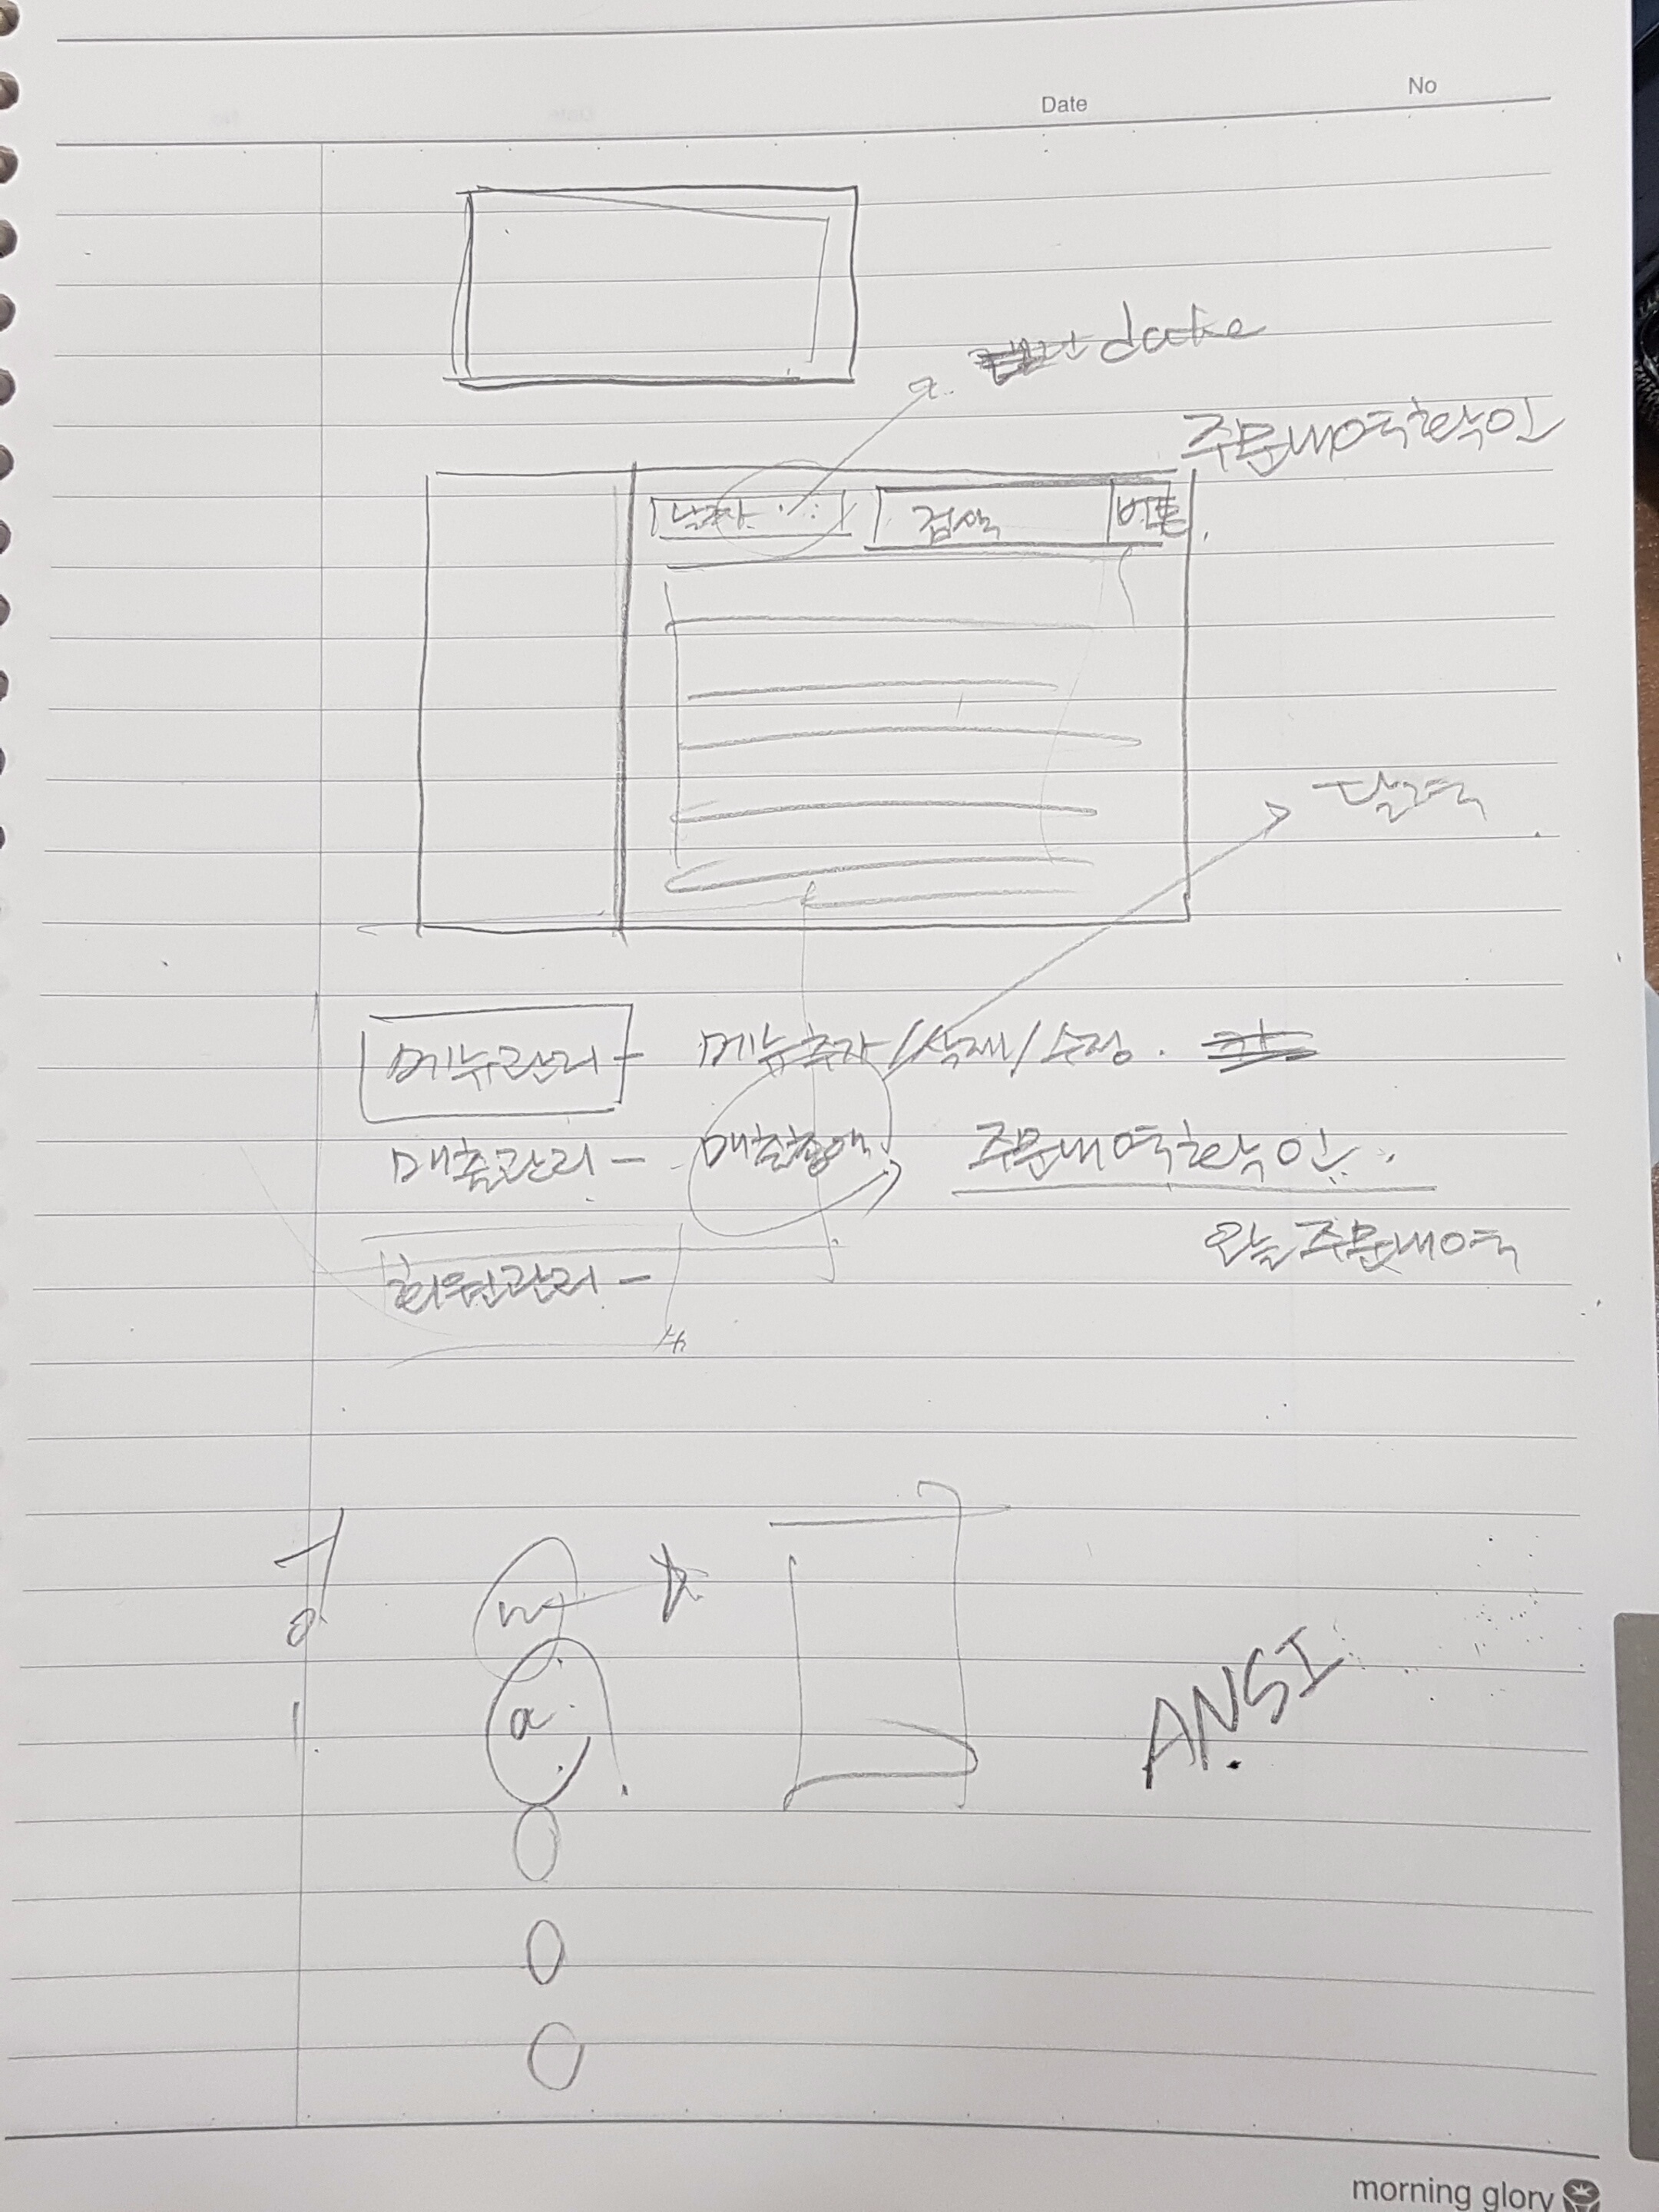 No
Date
date
주문내역확인
날짜
검색
버튼
달력
메뉴관리 - 메뉴추가/삭제/수정.
매출관리 - 매출총액 주문내역확인
오늘 주문내역
회원관리 -
a
ANSI
morning glory